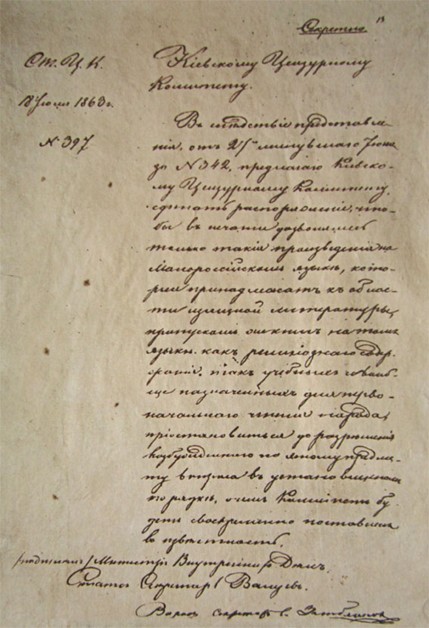 Секретно
От Ц. К.
18 Июля 1863 г.
№ 397
Кіевскому Цензурному
Комитету.
Въ слѣдствіе представле-
нія, отъ 27 минувшаго Іюня
за № 342, предлагаю Кіевско-
му Цензурному Комитету
сдѣлать распоряженіе, что-
бы въ печати дозволялись
только такія произведенія на
Малороссійскомъ языкѣ, кото-
рыя принадлежатъ къ облас-
ти изящной литературы;
пропускомъ же книгъ на томъ
языкѣ какъ религіознаго содер-
жанія, такъ учебныхъ и вооб-
ще назначенныхъ для перво-
начальнаго чтенія народа,
пріостановиться до разрѣшенія
возбужденнаго по этому предме-
ту вопроса въ установленномъ
порядкѣ, о чемъ Комитетъ бу-
детъ своевременно поставленъ
въ извѣстность.
(подписалъ) Министръ Внутреннихъ Дѣлъ,
Статсъ Секретарь Валуевъ.
Вѣрно: Секретарь